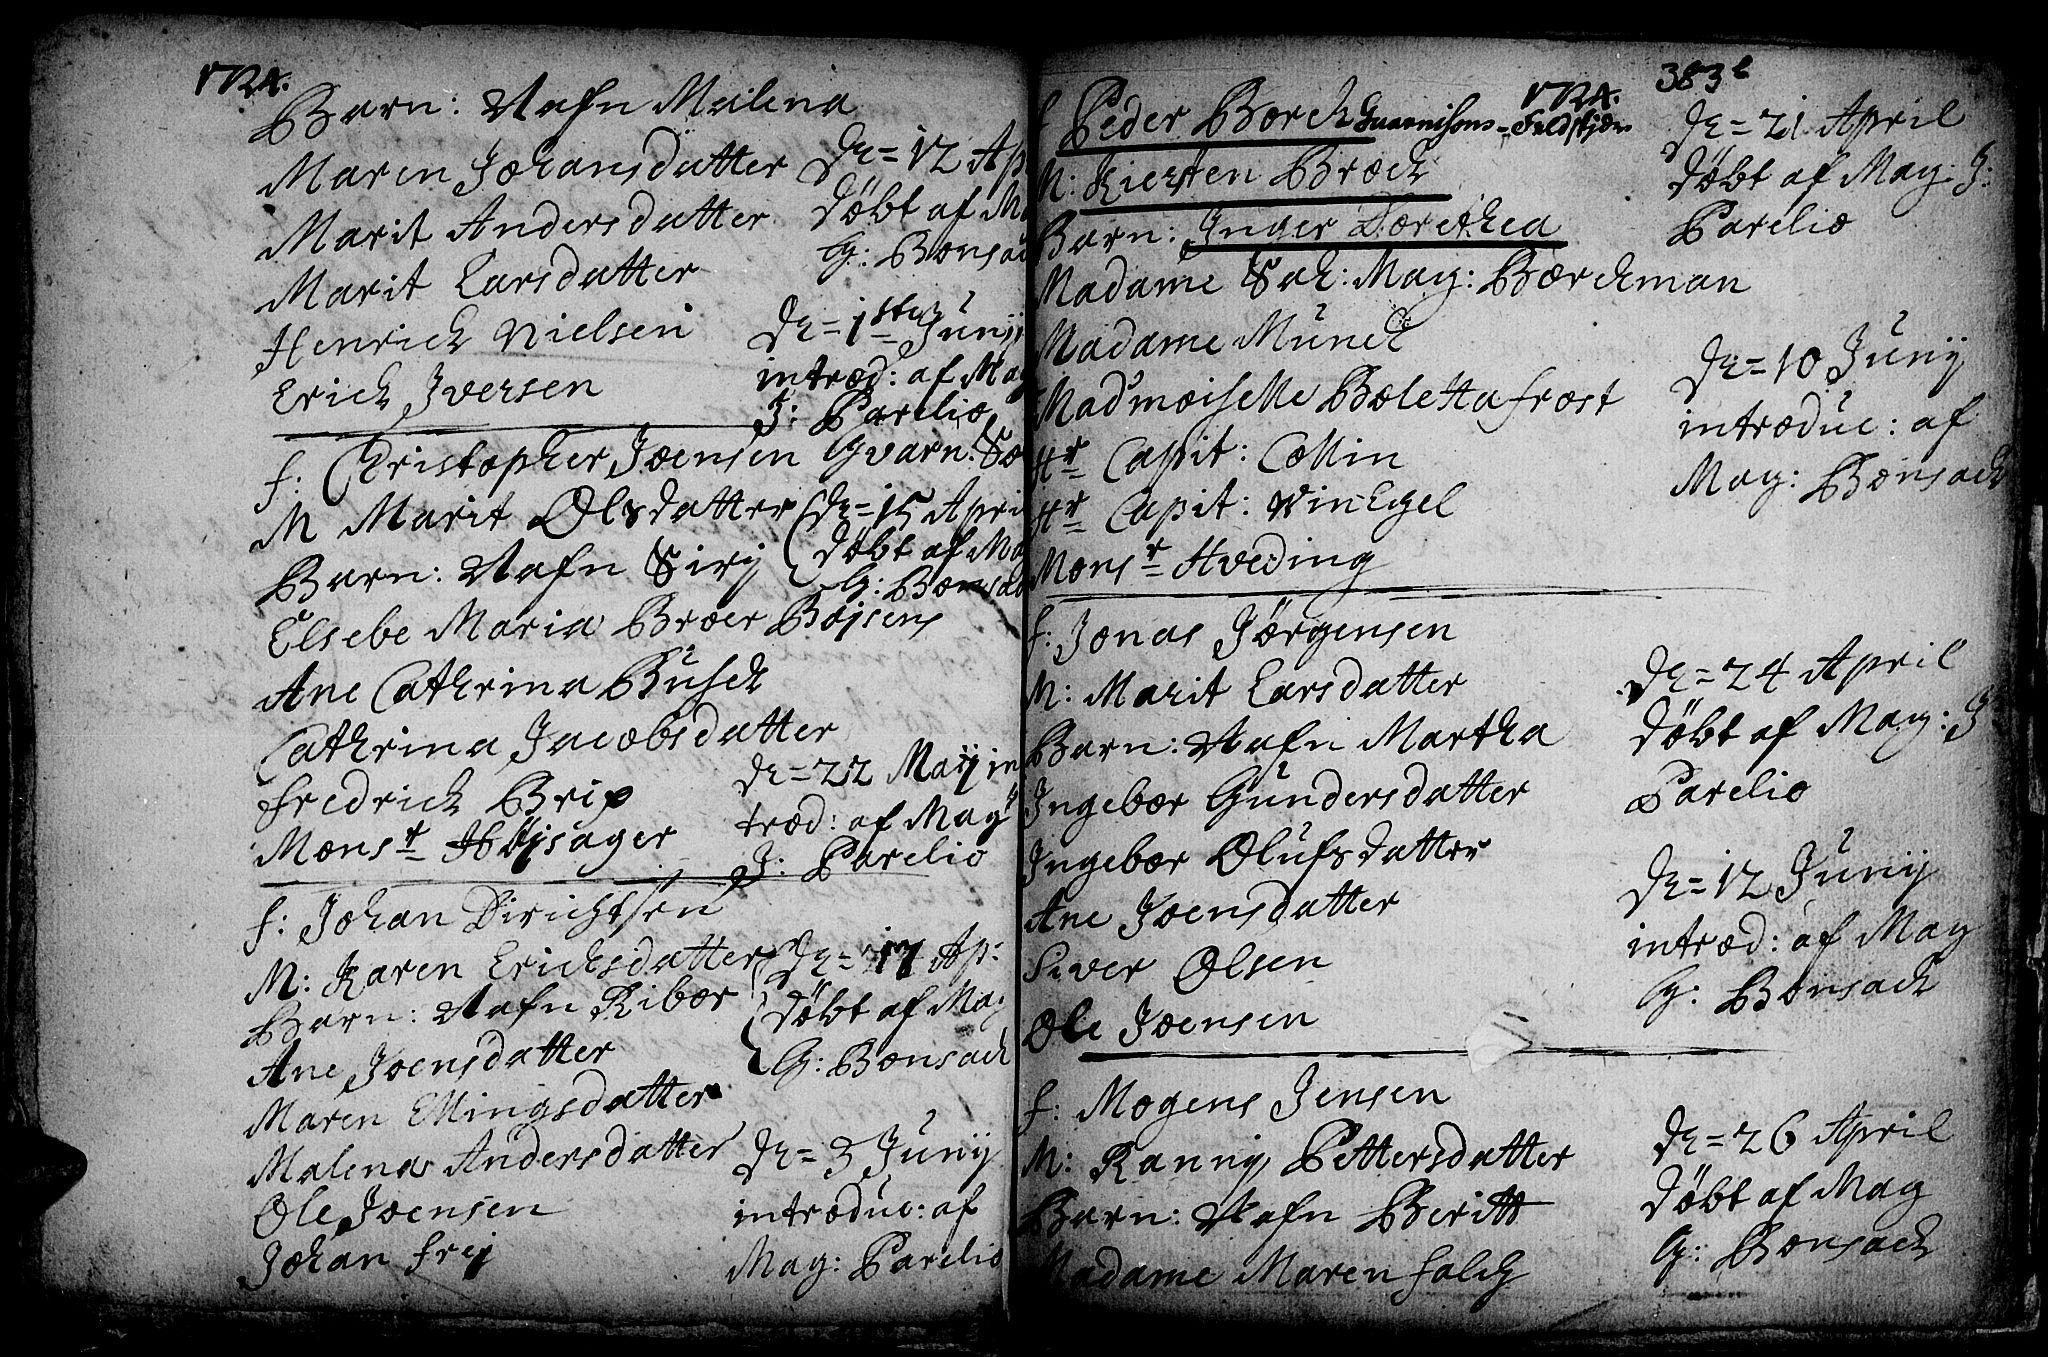 1724.
Barn: Nafn Malena
Maren Johansdatter
Marit Andersdatter
Marit Larsdatter
Henrich Nielsen
Erich Iversen
Dn = 12 Ap
døbt af M
G: Bonsac
Dn = 1ste Junij
introd: af Mag
J: Parelio
f: Christopher Joensen Gvarn: So
M Marit Olsdatter
Barn: Nafn Sirij
Elsebe Maria Broer Bojsens
Ane Cathrina Busch
Cathrina Jacobsdatter
Fredrich Brix
Monsr Højsager
Dn = 15 Apri
døbt af Mag
G: Bonsac
Dn = 22 Maij in
trod: af Mag
J: Parelio
f: Johan Dirichsen
M: Karen Erichsdatter
Barn: Nafn Ribor
Ane Joensdatter
Maren Ellingsdatter
Malena Andersdatter
Ole Joensen
Johan frij
Dn = 17 Ap:
døbt af Mag
G: Bonsach
Dn = 3 Junij
introduc: af
Mag: Parelio
1724. 383
f Peder Borch Guarnisons-Feldskjær
M: Kiersten Broch
Barn: Inger Dorethea
Madame Sal: Mag: Borchman
Madame Münch
Madmoiselle Boletta frost
Hr Capit: Collin
Hr Capit: Vinegel
Monsr Hveding
Dn = 21 April
døbt af Mag: J:
Parelio
Dn = 10 Junij
introduc: af
Mag: Bonsach
f: Jonas Jørgensen
M: Marit Larsdatter
Barn: Nafn Martha
Ingebor Gundersdatter
Ingebor Olufsdatter
Ane Joensdatter
Siver Olsen
Ole Joensen
Dn = 24 April
døbt af Mag: J
Parelio
Dn = 12 Junij
introd: af Mag
G: Bonsach
f: Mogens Jensen
M: Ranny Pettersdatter
Barn: Nafn Beritt
Madame Maren falch
Dn = 26 April
døbt af Mag
G: Bonsach